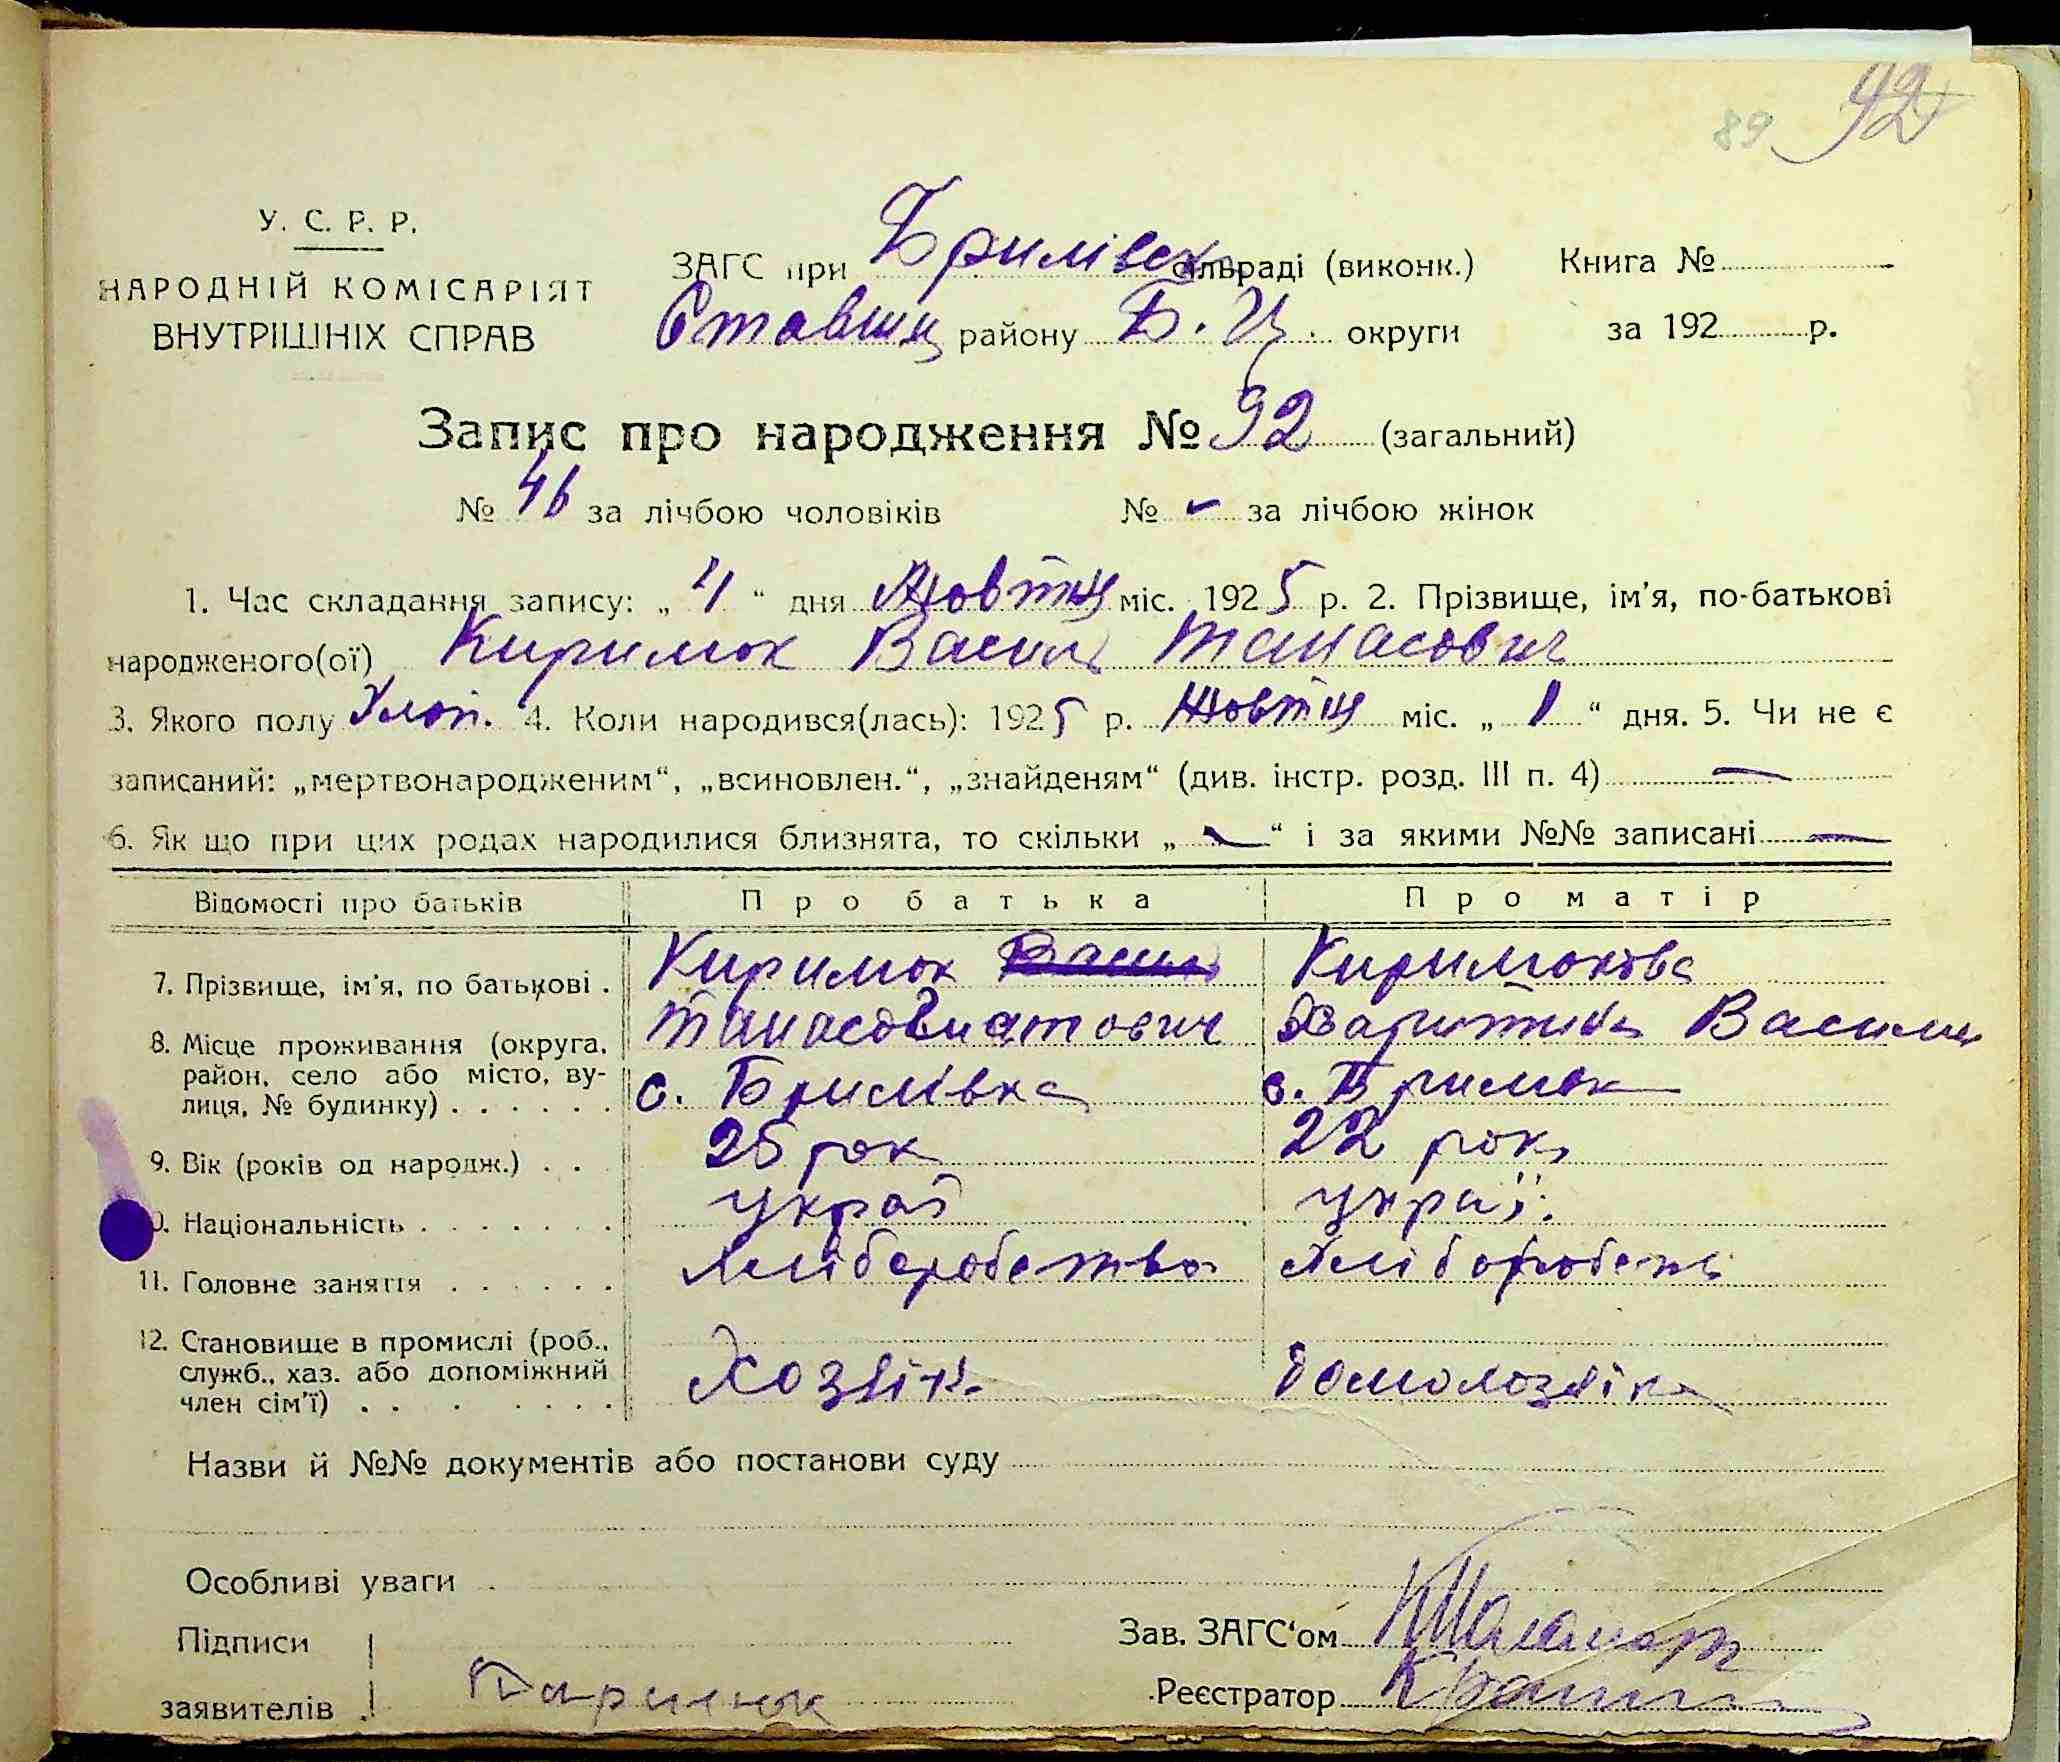 89 92
У. С. Р. Р.
НАРОДНІЙ КОМІСАРІЯТ
ВНУТРІШНІХ СПРАВ
ЗАГС при Брилівск сільраді (виконк.) Книга №
Ставищ району Б. Ц. округи за 192 р.
Запис про народження № 92 (загальний)
№ 46 за лічбою чоловіків № - за лічбою жінок
1. Час складання запису: „ 4 “ дня Жовтня міс. 1925 р. 2. Прізвище, ім’я, по-батькові
народженого(ої) Кирилюк Василь Танасович
3. Якого полу Хлоп. 4. Коли народився(лась): 1925 р. Жовтня міс. „ 1 “ дня. 5. Чи не є
записаний: „мертвонародженим“, „всиновлен.“, „знайденям“ (див. інстр. розд. III п. 4) —
6. Як що при цих родах народилися близнята, то скільки „ — “ і за якими №№ записані —
Відомості про батьків Про батька Про матір
7. Прізвище, ім’я, по батькові . Кирилюк Василь Кирилюкова
Танас Василь
8. Місце проживання (округа, район, село або місто, вулиця, № будинку) . . . . . . с. Брилівка с. Брилівка
9. Вік (років од народж.) . . 25 рок 22 рок
10. Національність . . . . . . . украї украї.
11. Головне заняття . . . . . . хліборобство хлібороб
12. Становище в промислі (роб.,
служб., хаз. або допоміжний
член сім’ї) . . . . . . . Хозяїн домохозяїка
Назви й №№ документів або постанови суду
Особливі уваги
Підписи Зав. ЗАГС‘ом
заявителів Кирилюк Реєстратор